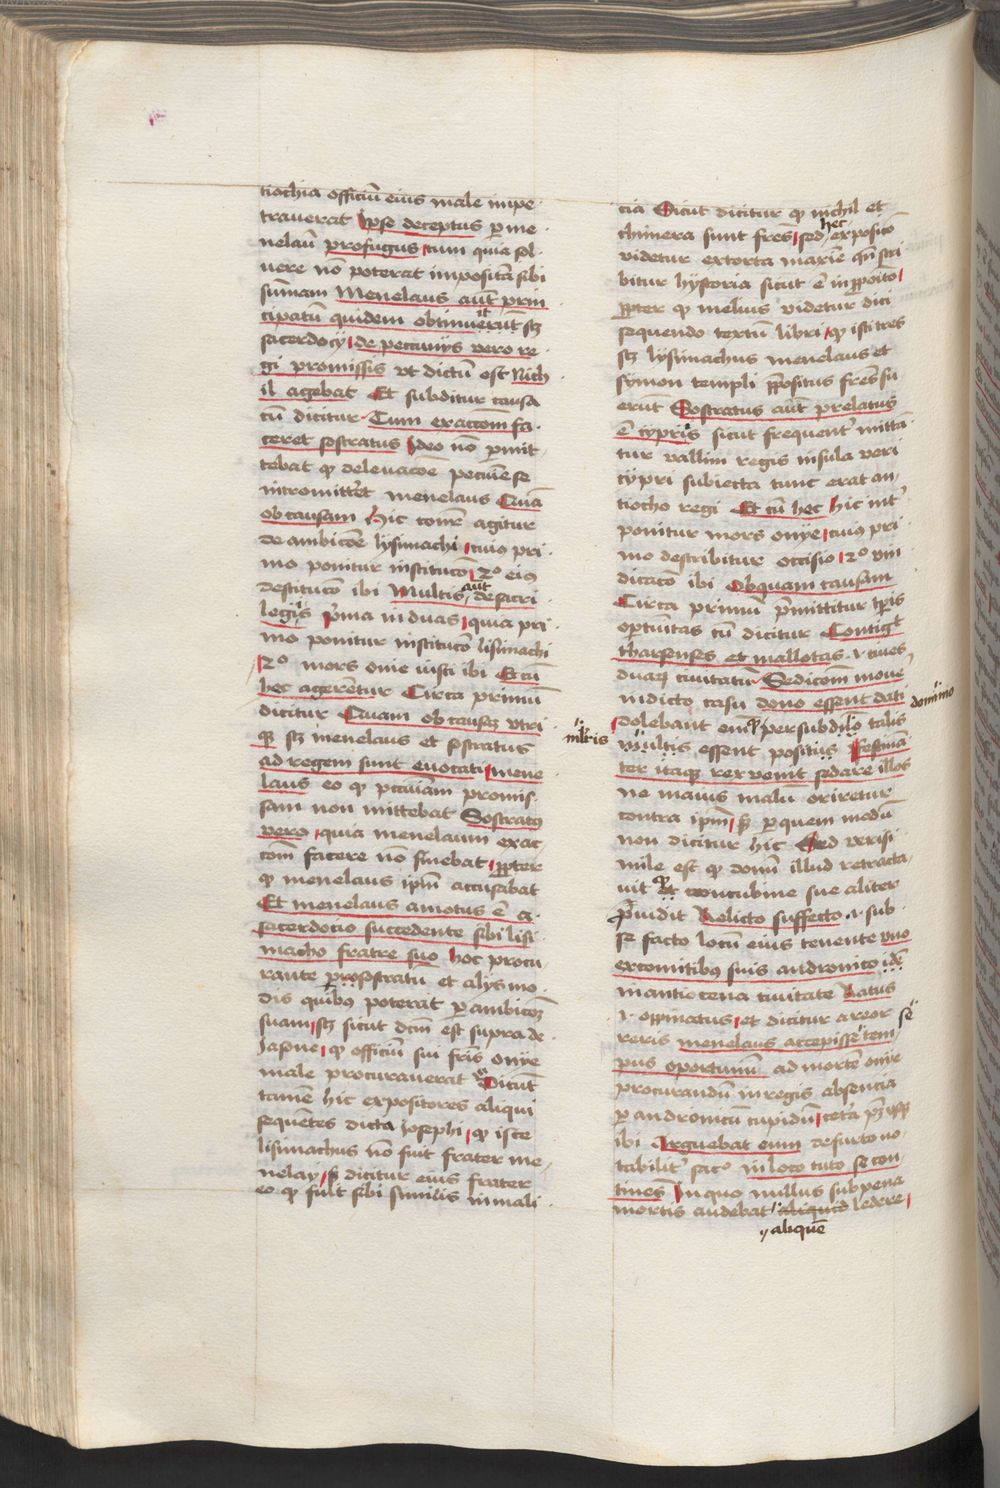 tiochia officiũ eius male impe
traverat Ipse deceptus p me
nelaũ profugus tum quia sol
vere nõ poterat impositã sibi
sum̃am Menelaus aut̃ prin
cipatũ quidem obtinuerũt sꝫ
sacerdocij de pecunijs vero re
gi promissis vt dictũ est Nich
il agebat Et subditur causa
cũ dicitur Cum exaccom̃ fa
ceret sostratus Ideo nõ pmit
tebat qꝫ de levacõe pecuie se
intromittet menelaus Quã
ob causam Hic cõnr agitur
de ambicõe lysimachi cuiꝰ pri
mo ponitur institucõ 2º eiꝰ
destitucõ ibi Multis aut̃ de sacri
legijs Prima in duas quia pri
mo ponitur institucõ lisimachi
2º mors onie iusti ibi Et cũ
hec agerẽtur Circa primũ
dicitur Quam ob causaꝫ vtri
qꝫ sꝫ menelaus et sostratus
ad regem sunt euocati mene
laus eo qꝫ pecuniam promis
sam non mittebat Sostratꝰ
vero quia menelaum exac
com̃ facere nõ sinebat ppter
qꝫ menelaus ipm̃ accusabat
Et menelaus amotus ẽ a
sacerdocio succedente sibi lisi
macho fratre suo hoc procu
rante sostratu et alijs mo
dis quibꝰ poterat p ambicoꝫ
suam sꝫ sicut dcm̃ est supra de
Jasone qꝫ officiũ sui fris̃ onije
male procuraverat Dicũt
tamẽ hic expositores aliqui
sequẽtes dicta Josephi qꝫ iste
lisimachus nõ fuit frater me
nelay sꝫ dicitur eius frater
eo qꝫ fuit sibi similis in mali
cia Sicut dicitur qꝫ nichil et
chimera sunt frẽs sed hec exposicõ
videtur extorta maxĩe qñ scri
bitur hystoria sicut ẽ in pposito
ppter qꝫ melius videtur dici
sequendo textũ libri qꝫ isti tres
sꝫ lysimachus menelaus et
symon templi ppositus frẽs fu
erũt Sostratus aut̃ prelatus
ẽ cypris sicut frequent̃ mitta
tur vallim regis insula veri
cypri subiecta tunc erat an
tiocho regi Et cũ hec Hic int̃
ponitur mors onije cuiꝰ pri
mo describitur occisio 2º vin
dicacõ ibi Ob quam causam
Circa primũ p̃mittitur tp̃ris
optunitas cũ dicitur Contigit
tharsenses et mallotas .i. cives
duaꝝ civitatũ Sedicom̃ move
in dicto casu dono essent dati domino
dolebant em̃ qꝫ per subdicõ talis
mltis
multis essent positus Festinã
ter itaqꝫ rex venit sedare illos
ne maius malũ oriretur
contra ipm̃ sꝫ p quem modũ
non dicitur hic Sed verisi
mile est qꝫ donũ illud retracta
vit et concubine sue aliter
p̃uidit Relicto suffecto .i. sub
se facto locũ eius tenente vno
ex comitibꝰ suis andronico idẽ
in anthiocena civitate Ratus
.i. oppinatus et dicitur a reor
reris menelaus accepisse se tem
pus oportunũ ad mortẽ onije
procurandũ in regis absencia
p andronicũ cupidũ
ibi Arguebat eum de furto no
tabilit̃ fact̃ in loco tuto se con
tinẽs In quo nullus sub pena
mortis audebat aliquid ledere
aliquẽ